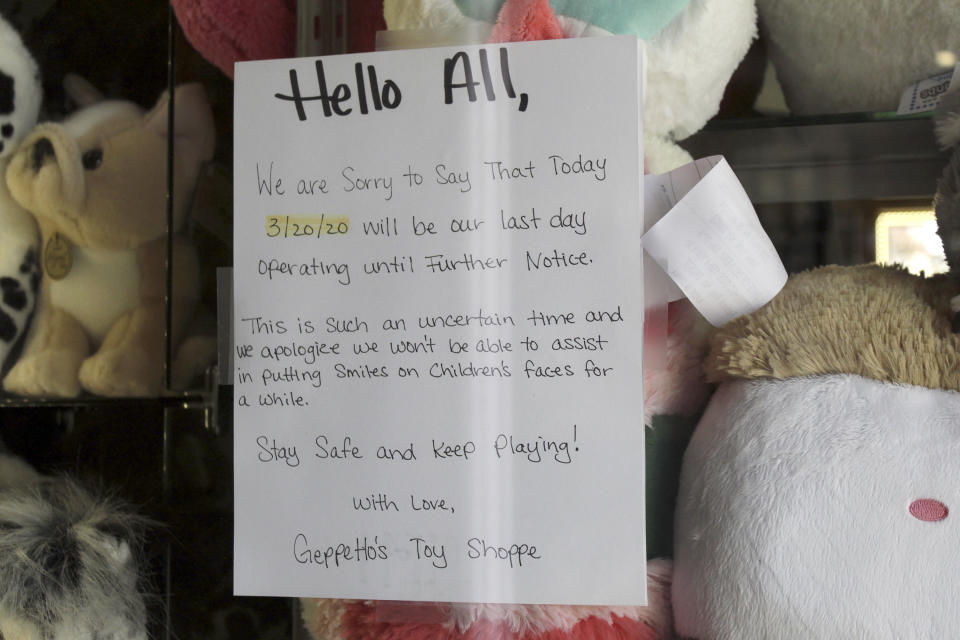 Hello All,
We are Sorry to Say That Today
3/20/20 will be our last day
operating until Further Notice.
This is Such an uncertain time and
we apologize we won't be able to assist
in putting Smiles on Children's faces for
a while.
Stay Safe and Keep Playing!
With Love,
Geppetto's Toy Shoppe